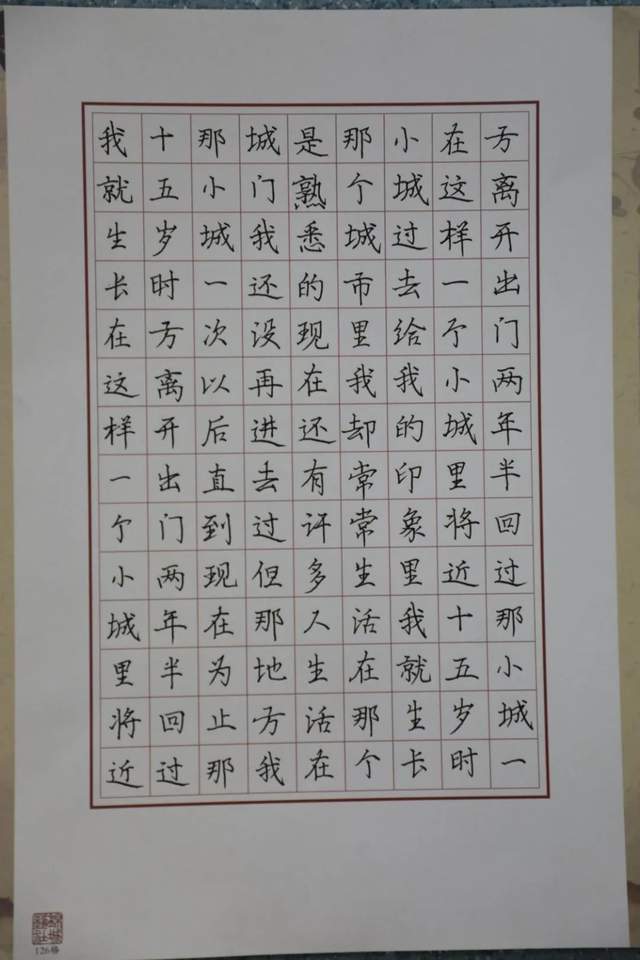 我就生长在这样一个小城里将近
十五岁时方离开出门两年半回过
那小城一次以后直到现在为止那
城门我还没再进去过但那地方我
是熟悉的现在还有许多人生活在
那个城市里我却常常生活在那个
小城过去给我的印象里我就生长
在这样一个小城里将近十五岁时
方离开出门两年半回过那小城一
126格